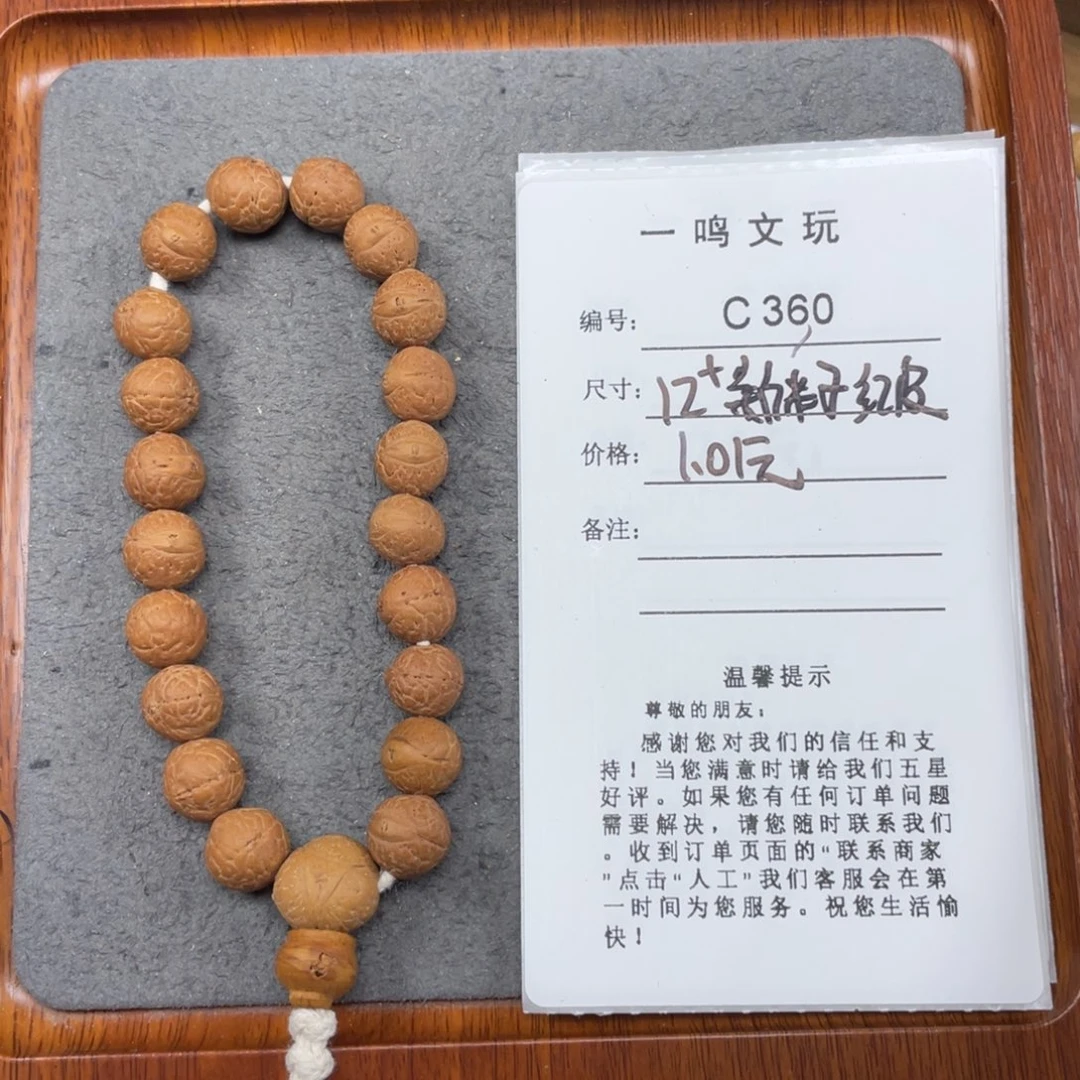 一鸣文玩
编号： C360
尺寸： 12+ 籽红皮
价格： 1.01元
备注：
温馨提示
尊敬的朋友：
感谢您对我们的信任和支
持！当您满意时请给我们五星
好评。如果您有任何订单问题
需要解决，请您随时联系我们
。收到订单页面的“联系商家
”点击“人工”我们客服会在第
一时间为您服务。祝您生活愉
快！